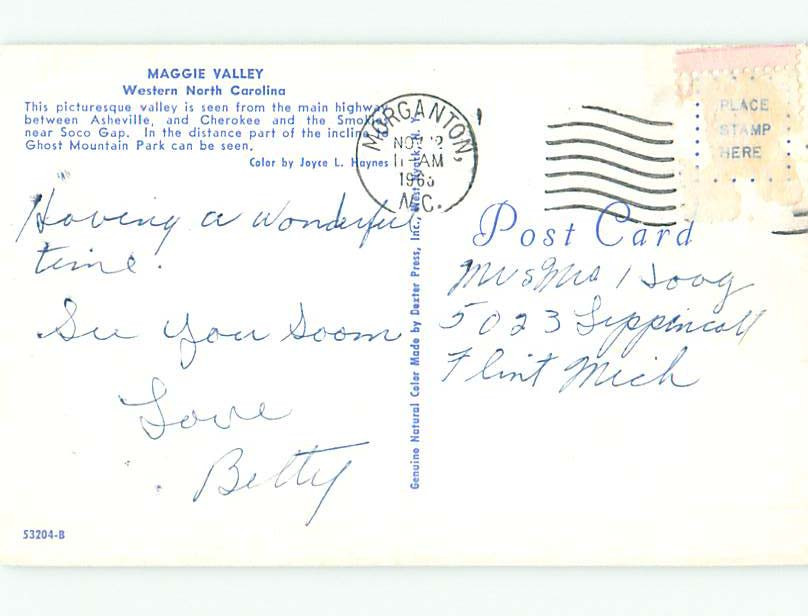 MAGGIE VALLEY
Western North Carolina
This picturesque valley is seen from the main highway
between Asheville, and Cherokee and the Smokies
near Soco Gap. In the distance part of the incline
Ghost Mountain Park can be seen.
Color by Joyce L. Haynes
Having a wonderful
time.
See you soon
Love
Betty
53204-B
Genuine Natural Color Made by Dexter Press, Inc., West Nyack, N.
MORGANTON,
NOV 2
AM
N.C.
PLACE
STAMP
HERE
Post Card
Mr & Mrs Hoag
5023 Lippincott
Flint Mich